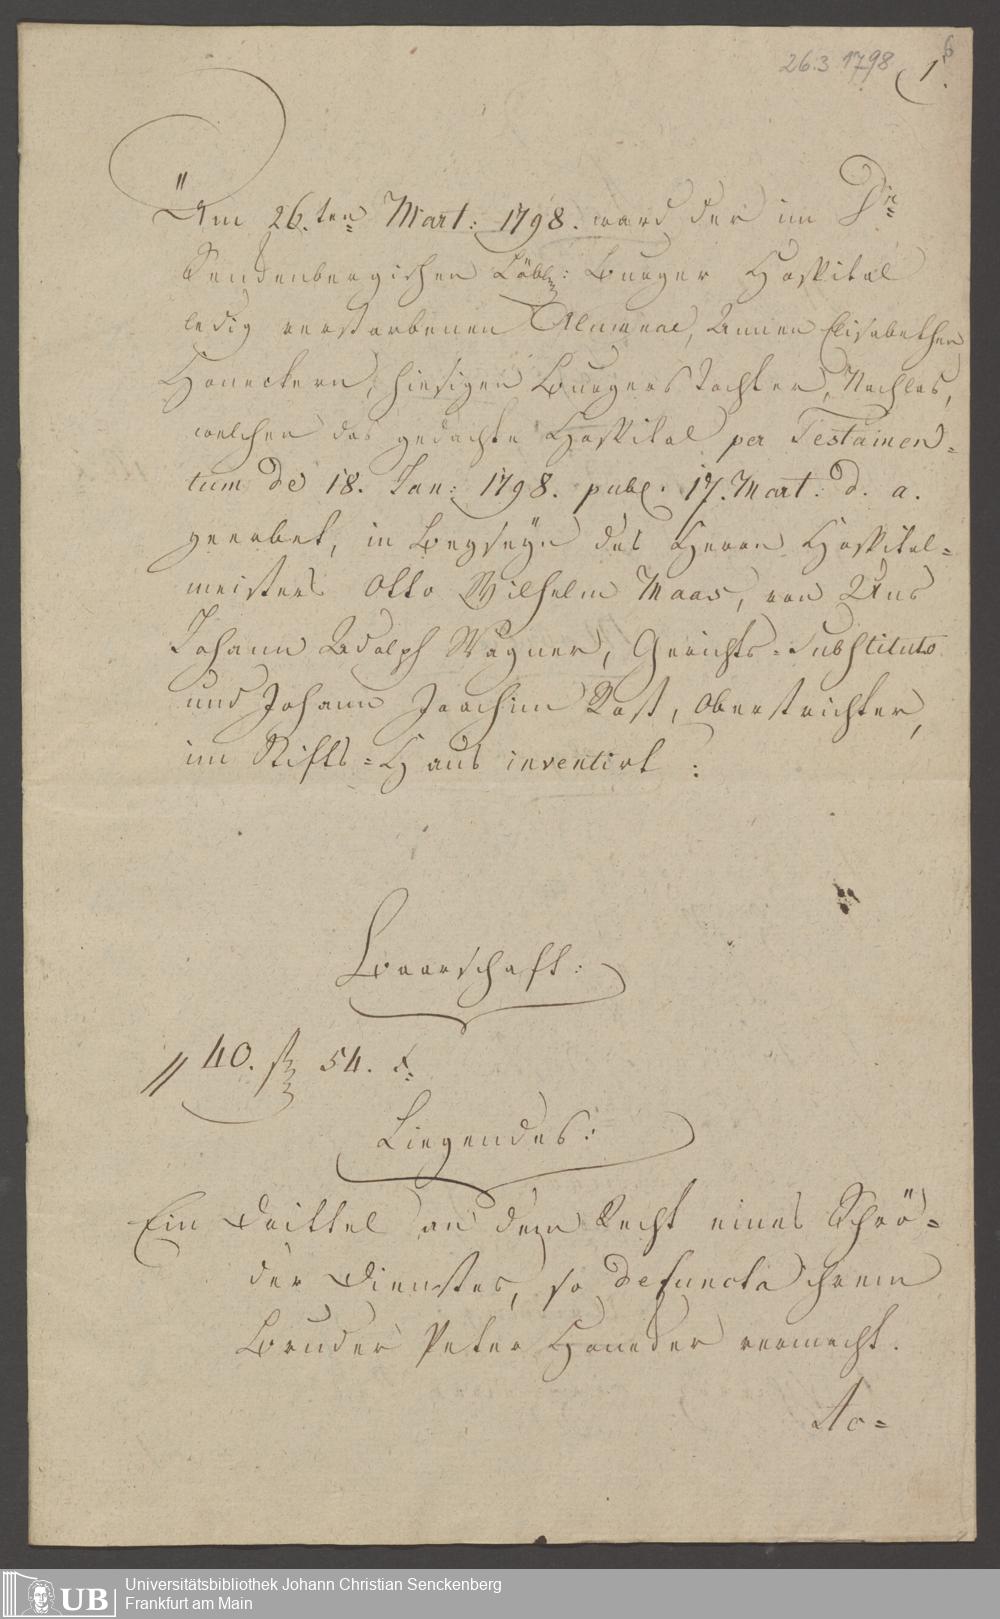 26.3.1798
1.
Am 26.ten Mart: 1798. ward der im Dr.
Senckenbergischen Löbl: Burger Hospital
ledig verstorbenen Alumnae, Annen Elisabethen
Honeckern, hiesigen Burgers Tochter, Nachlas,
welchen das gedachte Hospital per Testamen=
tum de 18. Jan: 1798. publ. 17. Mart: d. a.
geerbet, in Beyseyn des Herrn Hospital=
meisters Otto Wilhelm Maas, von Uns
Johann Adolph Wagner, Gerichts=Substituto
und Johann Joachim Rost, Oberstrichter,
im Stifts=Haus inventirt:
Baarschaft:
40. f 54. x.
Liegendes:
Ein Drittel an dem Recht eines Schrö=
der Dienstes, so defuncta ihrem
Bruder Peter Honecker vermacht.
Ac=
UB Universitätsbibliothek Johann Christian Senckenberg
Frankfurt am Main